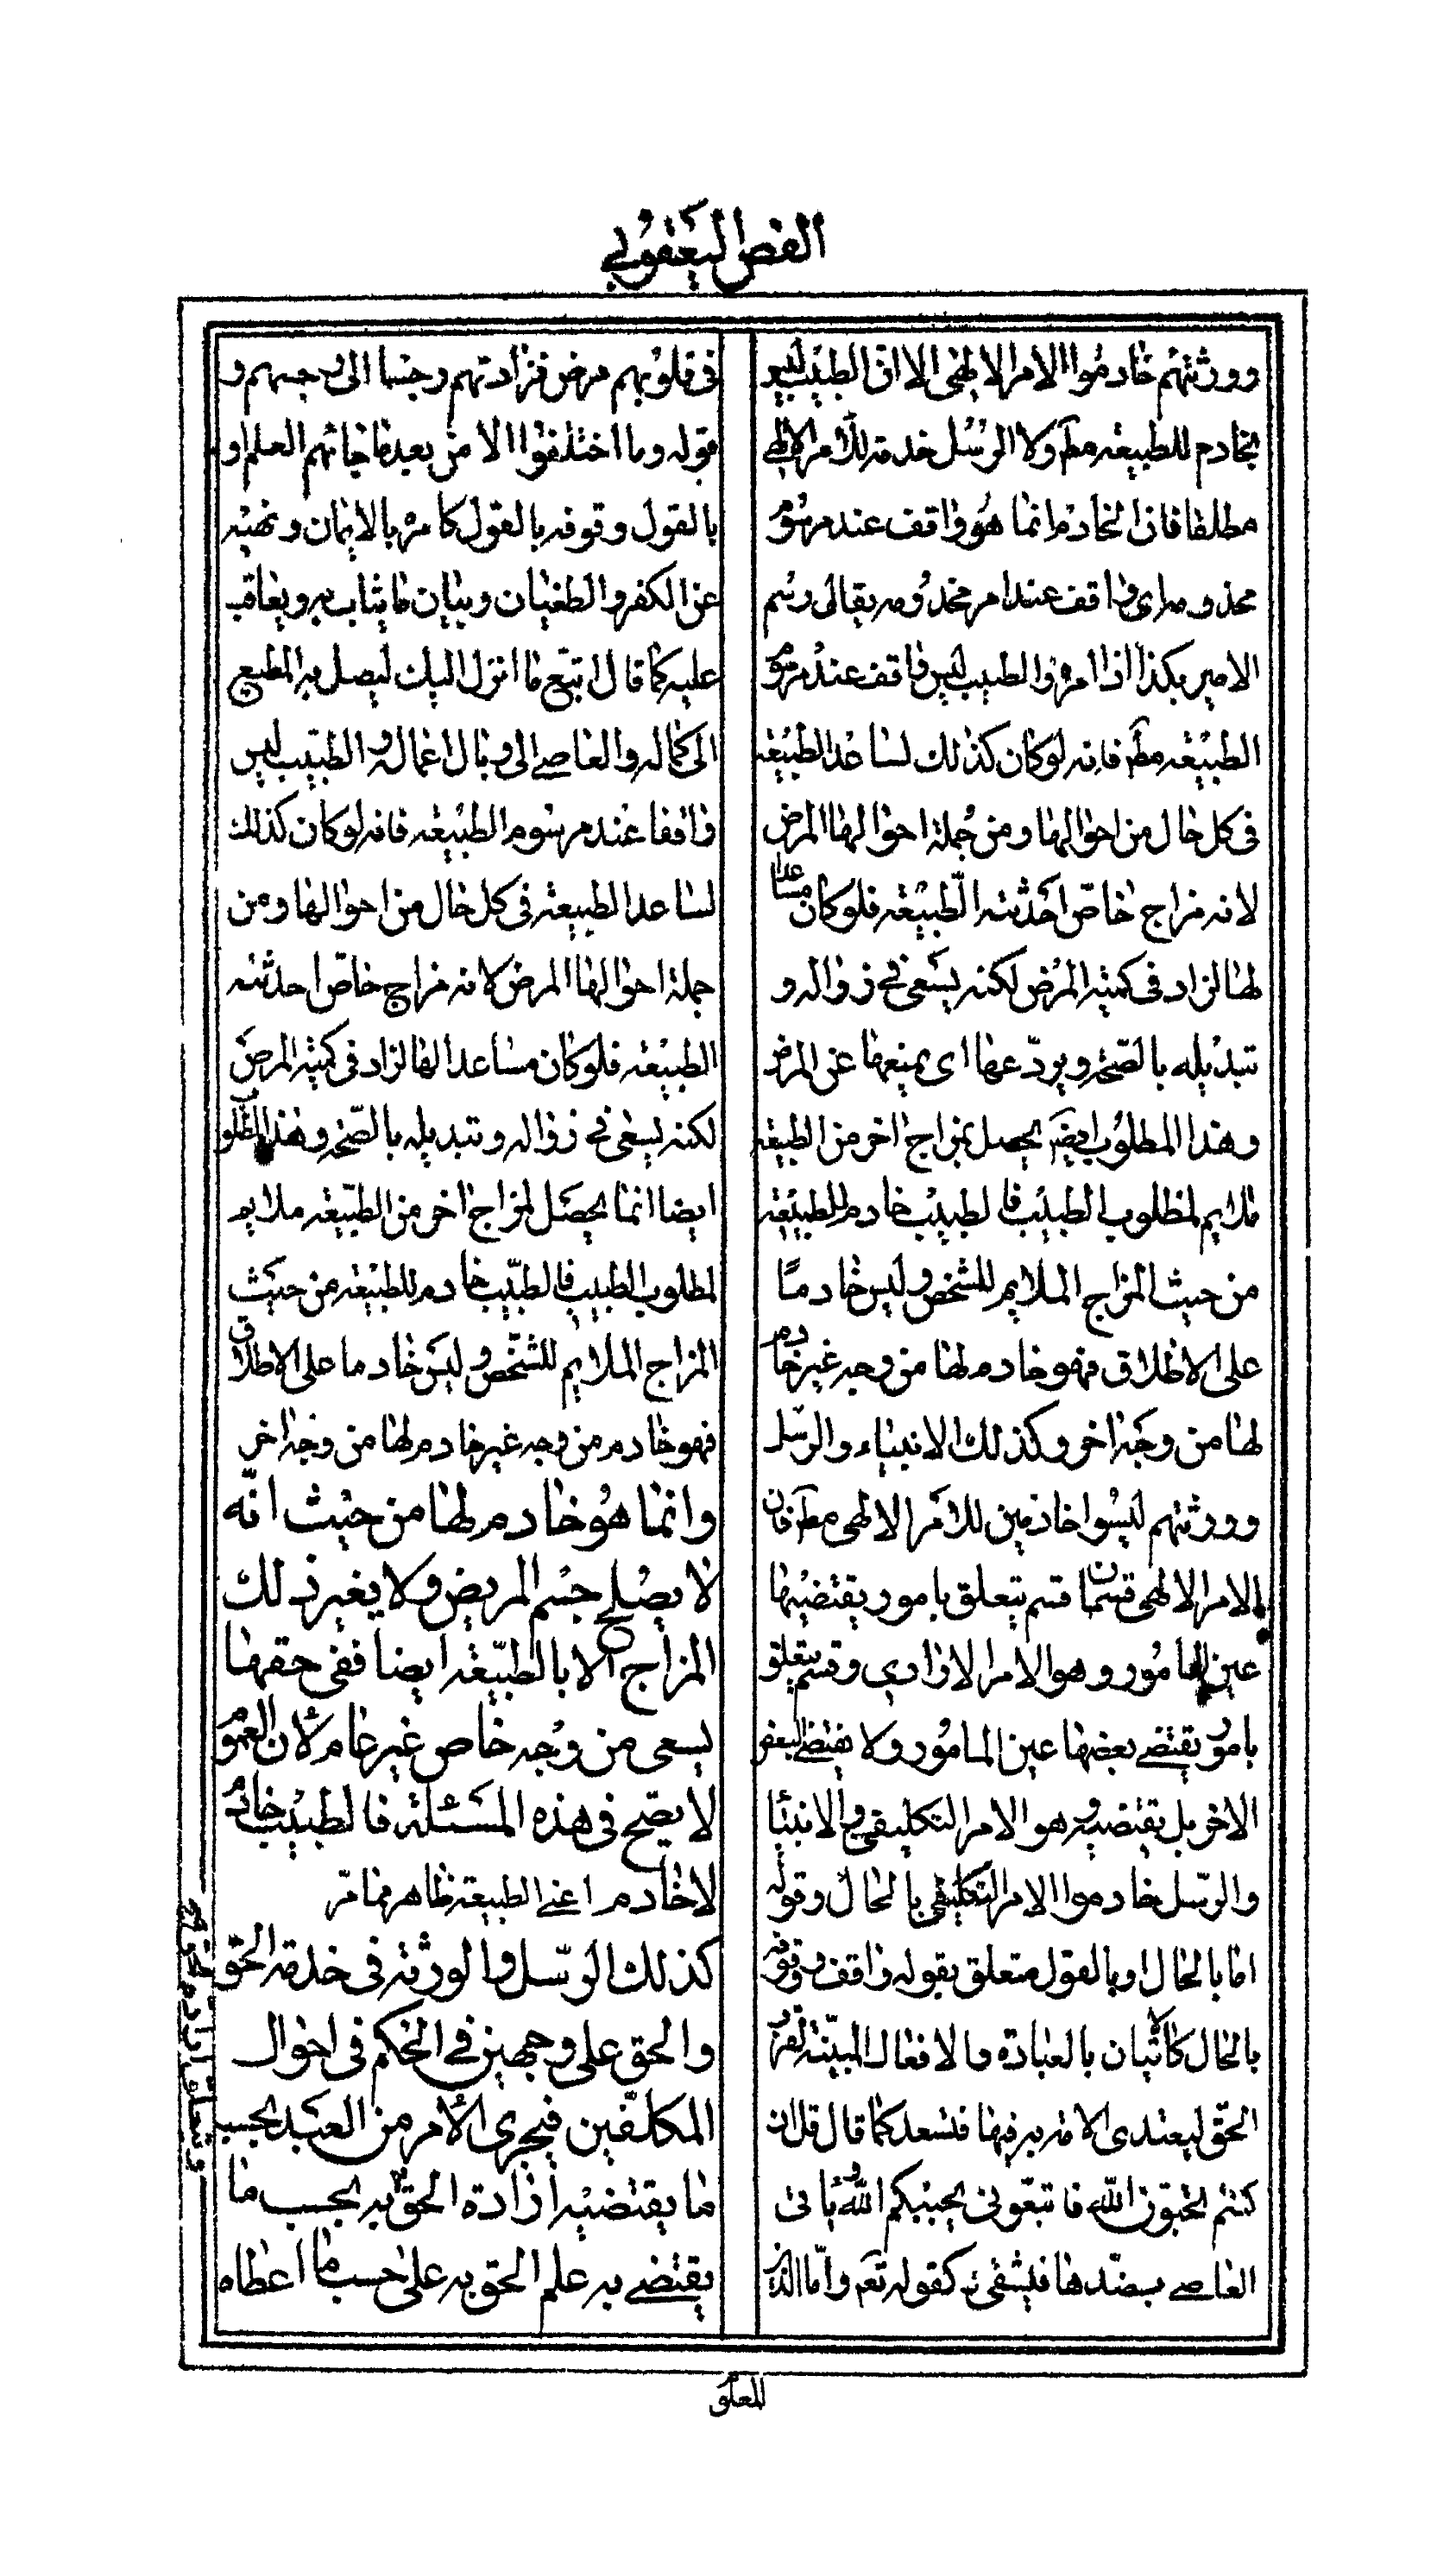 الفص اليعقوبي
وورثتهم خادموا الامر الالهي الا ان الطبيب ليس
بخادم للطبيعة مطم ولا الرسل خدمة للامر الالهي
مطلقا فان الخادم انما هو واقف عند مرسوم
مخدومه اي واقف عند امر مخدومه يقال رسم
الامير بكذا اذا امره والطبيب ليس واقف عند مرسوم
الطبيعة مطم فانه لو كان كذلك لساعد الطبيعة
في كل حال من احوالها ومن جملة احوالها المرض
لانه مزاج خاص احدثته الطبيعة فلو كان مساعدا
لها لزاد في كمية المرض لكنه يسعى في زواله و
تبديله بالصحة ويردعها اى يمنعها عن المرض
وهذا المطلوب ايضا يحصل بمزاج اخر من الطبيعة
ملايم لمطلوب الطبيب فالطبيب خادم للطبيعة
من حيث المزاج الملايم للشخص وليس خادمًا
على الاطلاق فهو خادم لها من وجه غير خادم
لها من وجه اخر وكذلك الانبياء والرسل
وورثتهم ليسوا خادمين للامر الالهى مطم فان
الامر الالهى قسمان قسم يتعلق بامور يقتضيها
عين المامور وهو الامر الارادي وقسم يتعلق
بامور يقتضے بعضها عين المامور ولا يقتضے البعض
الاخر بل يقتضيه وهو الامر التكليفى والانبيا
والرسل خادموا الامر التكليفى بالحال وقوله
اما بالحال او بالقول متعلق بقوله واقف ووقوفه
بالحال كالاتيان بالعبادة والافعال المبينة لقرب
الحق ليعتدى الامة به فيها فتسعد كما قال قل ان
كنتم تحبون الله فاتبعوني يحببكم الله ويأتى
العاصے بضدها فيشقى به كقوله تعم واما الذين
في قلوبهم مرض فزادتهم رجسا الى رجسهم و
قوله وما اختلفوا الا من بعد ما جائهم العلم او
بالقول وقوفه بالقول كامره بالايمان ونهيه
عن الكفر والطغيان وبيان ما يثاب به ويعاقب
عليه كما قال اتبع ما انزل اليك ليصل به المطيع
الى كماله والعاصے الى وبال اعماله والطبيب ليس
واقفا عند مرسوم الطبيعة فانه لو كان كذلك
لساعد الطبيعة في كل حال من احوالها ومن
جملة احوالها المرض لانه مزاج خاص احدثته
الطبيعة فلو كان مساعدا لها لزاد في كمية المرض
لكنه يسعى في زواله وتبديله بالصحة وهذا المطلوب
ايضا انما يحصل لمزاج اخر من الطبيعة ملايم
لمطلوب الطبيب فالطبيب خادم للطبيعة من حيث
المزاج الملايم للشخص وليس خادما على الاطلاق
فهو خادم من وجه غير خادم لها من وجه اخر
وانما هو خادم لها من حيث انه
لا يصلح جسم المريض ولا يغير ذلك
المزاج الا بالطبيعة ايضا ففي حقها
يسعى من وجه خاص غير عام لأن العموم
لا يصح في هذه المسئلة فالطبيب خادم
لا خادم اعنے الطبيعة ظاهر مما مر
كذلك الرسل والورثة في خدمة الحق
والحق على وجهين في الحكم في احوال
المكلفين فيجرى الأمر من العبد بحسب
ما يقتضيه ارادة الحق به بحسب ما
يقتضے به علم الحق به على حسب ما اعطاه
للمعلق